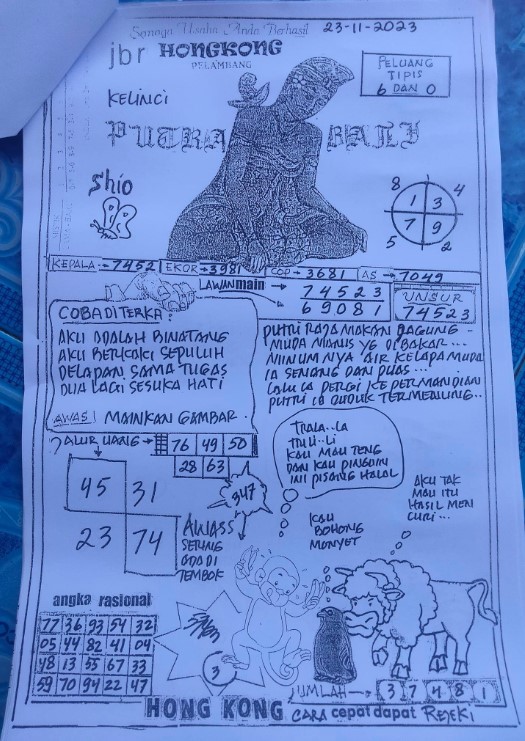 Semoga Usaha Anda Berhasil
23-11-2023
jbr HONGKONG
PELAMBANG
PELUANG
TIPIS
6 DAN 0
KELINCI
PUTRA BALI
Shio
8 4
1 3
7 9
5 2
KEPALA → 7452 EKOR → 3981 COP → 3681 AS → 7049
LAWAN main → 74523
69081
UNSUR
74523
COBA DITERKA :
AKU ADALAH BINATANG
AKU BERKAKI SEPULUH
DELAPAN SAMA TUGAS
DUA LAGI SESUKA HATI
AWAS! MAINKAN GAMBAR.
PUTRI RAJA MAKAN JAGUNG
MUDA MANIS YG DIBAKAR...
MINUMNYA AIR KELAPA MUDA
IA SENANG DAN PUAS...
LALU IA PERGI KEPERMANDIAN
PUTRI ITU DUDUK TERMENUNG..
JALUR UANG → 76 49 50
28 63
45 31
23 74
347
AWASS
SERING
ADA DI
TEMBOK
TRALA..LA
TRILI..LI
KAU MAU TENG
DAN KAU PINGUIN
INI PISANG HALAL
KAU
BOHONG
MONYET
AKU TAK
MAU ITU
HASIL MEN
CURI...
angka rasional
77 36 93 54 32
05 44 82 41 04
48 13 55 67 33
59 70 94 22 47
3
JUMLAH → 3 7 4 8 1
HONG KONG CARA cepat dapat REJEKI